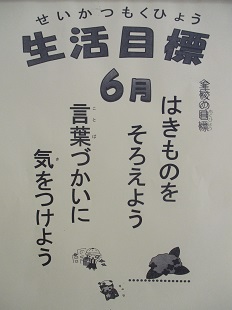 せいかつもくひょう
生活目標
6月
全校の目標
はきものを
そろえよう
言葉づかいに
気をつけよう